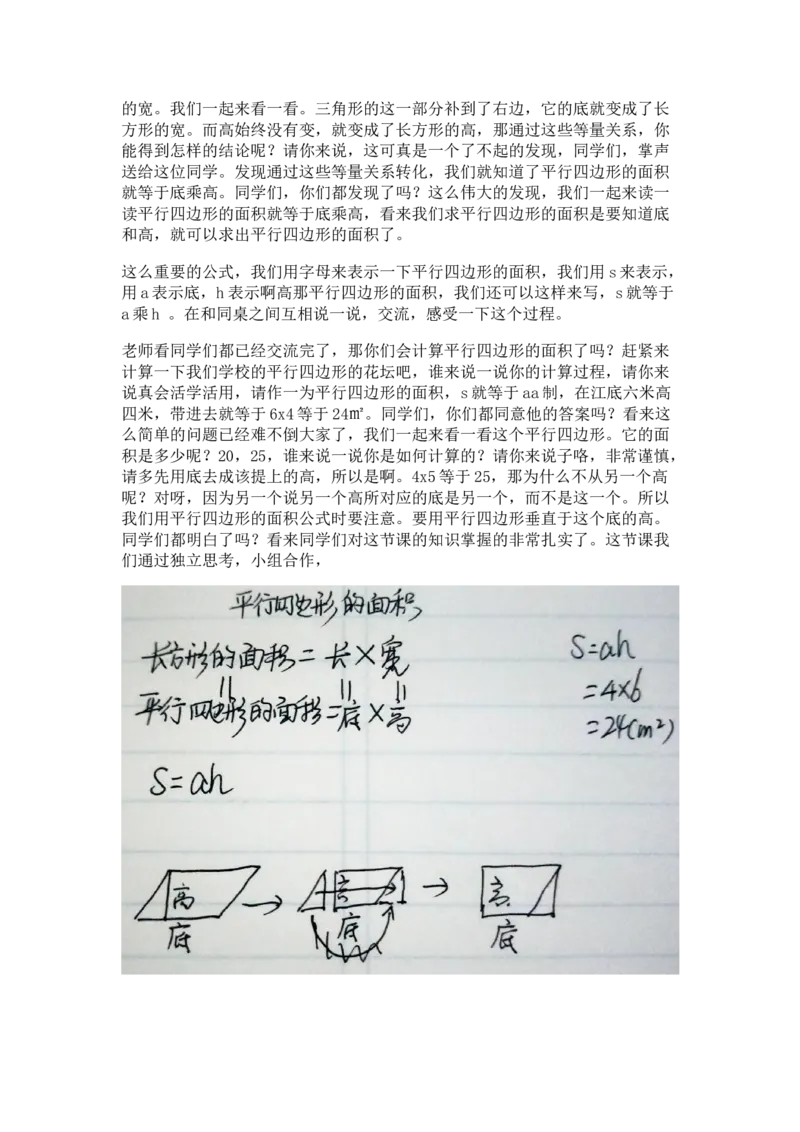 的宽。我们一起来看一看。三角形的这一部分补到了右边，它的底就变成了长
方形的宽。而高始终没有变，就变成了长方形的高，那通过这些等量关系，你
能得到怎样的结论呢？请你来说，这可真是一个了不起的发现，同学们，掌声
送给这位同学。发现通过这些等量关系转化，我们就知道了平行四边形的面积
就等于底乘高。同学们，你们都发现了吗？这么伟大的发现，我们一起来读一
读平行四边形的面积就等于底乘高，看来我们求平行四边形的面积是要知道底
和高，就可以求出平行四边形的面积了。
这么重要的公式，我们用字母来表示一下平行四边形的面积，我们用s来表示，
用a表示底，h表示啊高那平行四边形的面积，我们还可以这样来写，s就等于
a乘h 。在和同桌之间互相说一说，交流，感受一下这个过程。
老师看同学们都已经交流完了，那你们会计算平行四边形的面积了吗？赶紧来
计算一下我们学校的平行四边形的花坛吧，谁来说一说你的计算过程，请你来
说真会活学活用，请作一为平行四边形的面积，s就等于aa制，在江底六米高
四米，带进去就等于6x4等于24㎡。同学们，你们都同意他的答案吗？看来这
么简单的问题已经难不倒大家了，我们一起来看一看这个平行四边形。它的面
积是多少呢？20，25，谁来说一说你是如何计算的？请你来说子咯，非常谨慎，
请多先用底去成该提上的高，所以是啊。4x5等于25，那为什么不从另一个高
呢？对呀，因为另一个说另一个高所对应的底是另一个，而不是这一个。所以
我们用平行四边形的面积公式时要注意。要用平行四边形垂直于这个底的高。
同学们都明白了吗？看来同学们对这节课的知识掌握的非常扎实了。这节课我
们通过独立思考，小组合作，
平行四边形的面积
长方形的面积=长×宽
平行四边形的面积=底×高
S=ah
S=ah
=4×6
=24(m²)
高 底
高 底
高 底